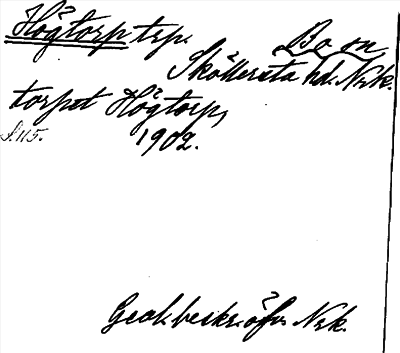 Högtorp trp. Bo sn
Sköllersta hd. Nrk.
torpet Högtorp,
S. 115. 1902.
Geol. beskr. öfv. Nrk.